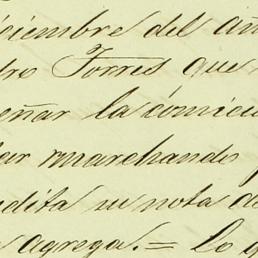 iciembre del añ
dro Torres que
eñar la comici
ar marchando
ndita su nota de
agrega. = Lo q